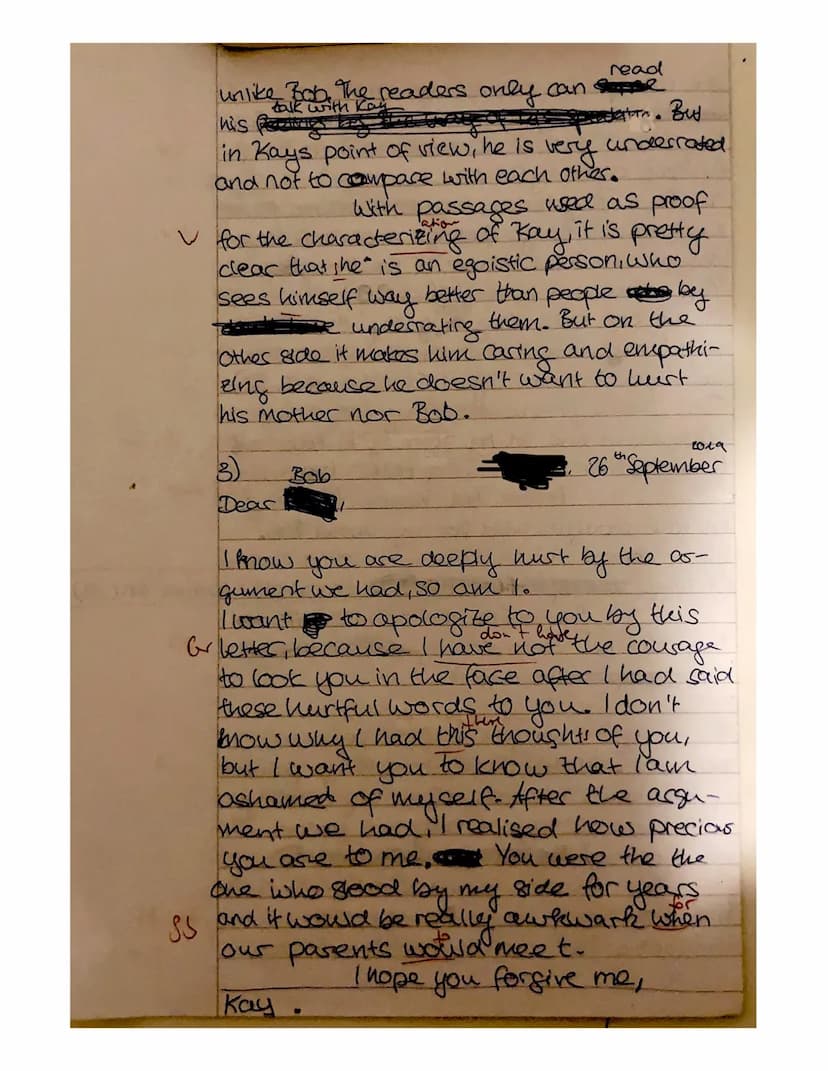 read
unlike Bob. The readers only can
talk with Kay
his . But
in Kays point of view, he is very underrated
and not to compare with each other.
With passages used as proof
ation
V for the characterizing of Kay, it is pretty
clear that "he" is an egoistic person, who
sees himself way better than people by
underrating them. But on the
other side it makes him caring and empathi-
zing because he doesn't want to hurt
his mother nor Bob.
2019
3) Bob , 26th September
Dear ,
I know you are deeply hurt by the ar-
gument we had, so am I.
I want to apologize to you by this
don't have
Gr letter, because I have not the courage
to look you in the face after I had said
these hurtful words to you. I don't
these
know why I had this thoughts of you,
but I want you to know that I am
ashamed of myself. After the argu-
ment we had, I realised how precious
you are to me. You were the the
one who stood by my side for years
for
SS and it would be really awkwark when
to
our parents would meet.
I hope you forgive me,
Kay .